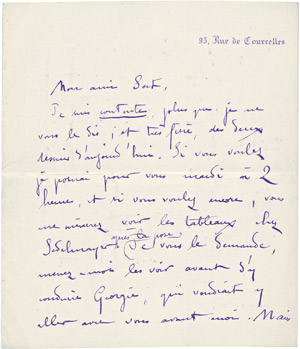 93, Rue de Courcelles
Mon ami Sert,
Je suis contente, plus que je ne
vous le dis, et très fière, des deux
dessins d'aujourd'hui. Si vous voulez
je poserai pour vous mardi à 2
heures, et si vous voulez encore, vous
me mènerez voir les tableaux chez
après la pose
(Je vous le demande,
menez-mois les voir avant d'y
conduire Georgie, qui voudrait y
aller avec vous avant moi. Mais